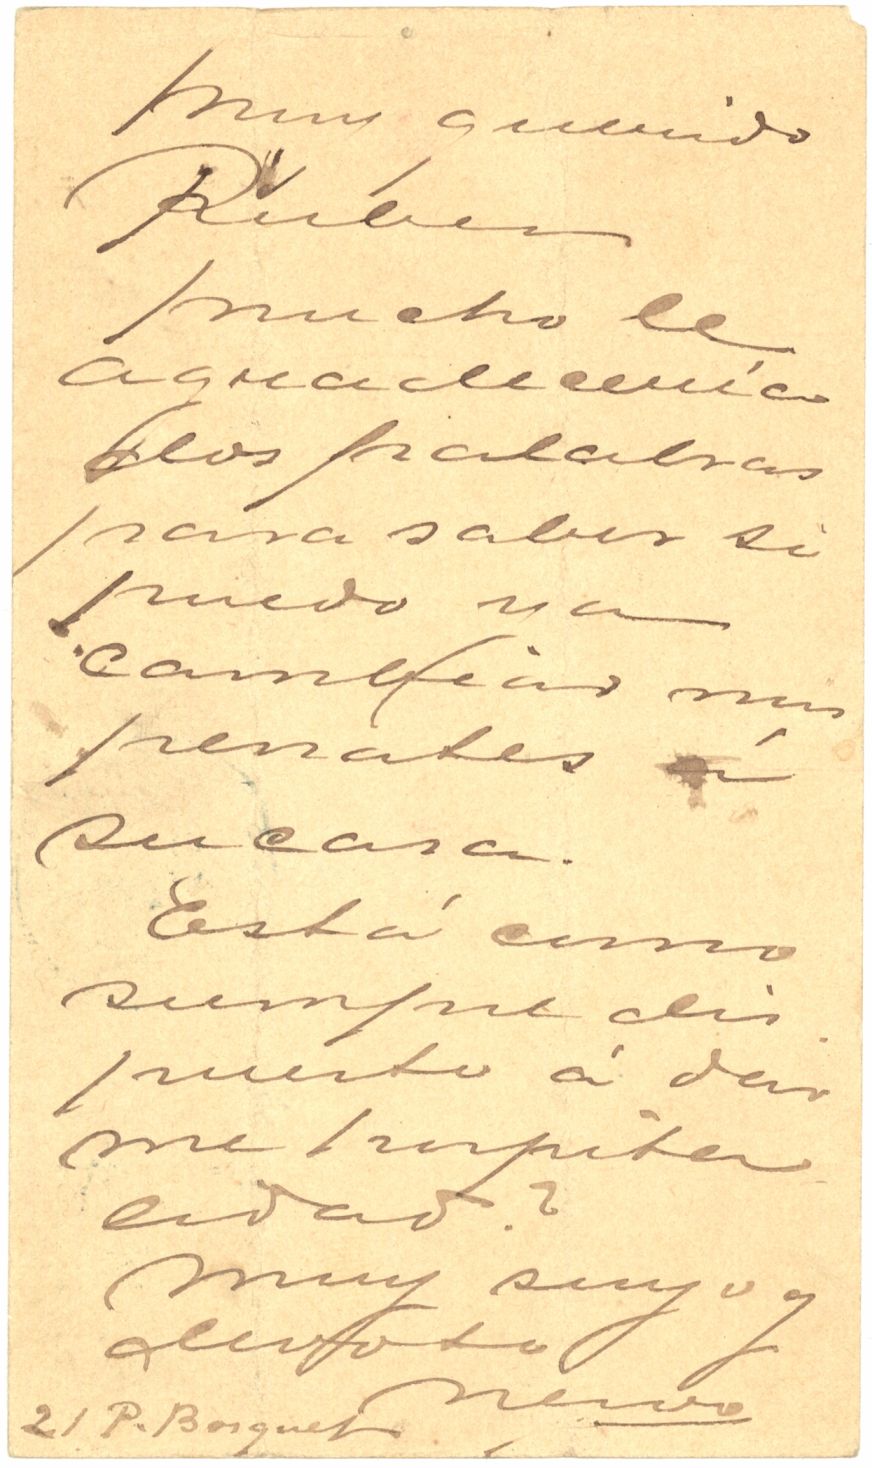 Muy querido
Rubén
mucho le
agradecería
dos palabras
para saber si
puedo ya
cambiar mis
penates á
su casa.
Está como
siempre dis
puesto á dar
me hospita
lidad?
Muy suyo y
devoto
Nervo
21 P. Bosquet